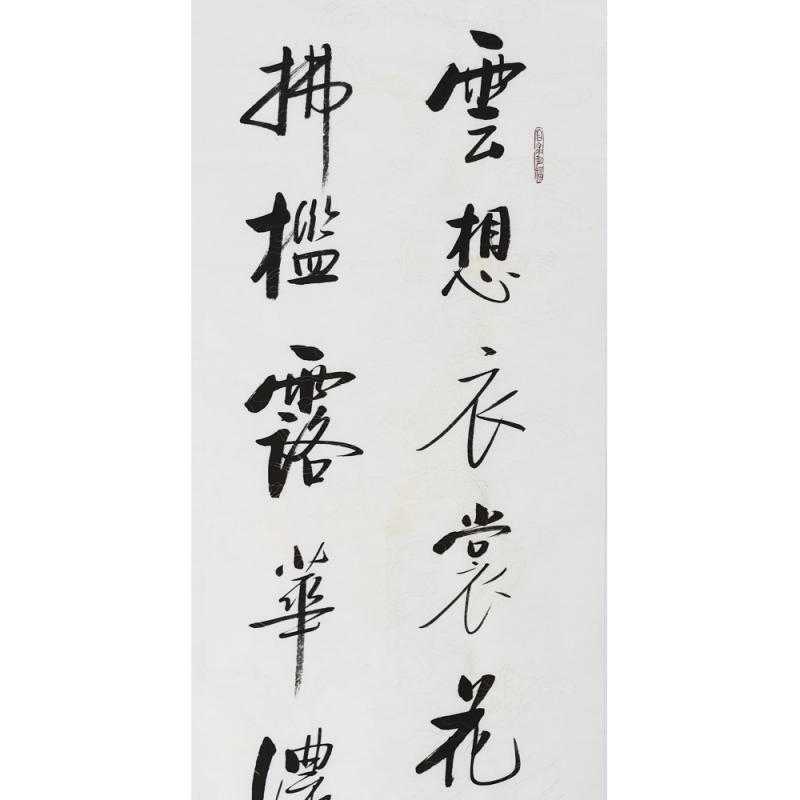 雲想衣裳花
拂檻露華濃